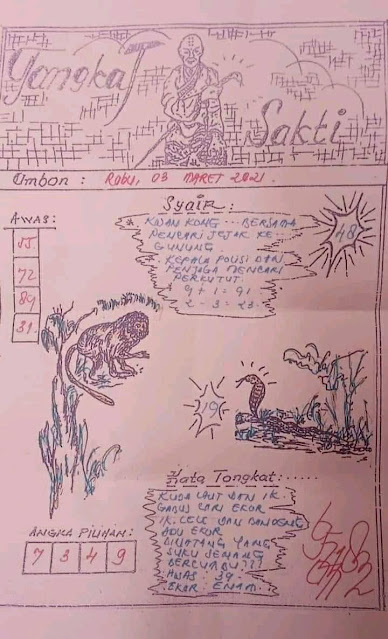 Tongkat
Sakti
Ombon : RABU, 03 MARET 2021.
AWAS:
55
72
89
31
Syair:
KWAN KONG --- BERSAMA
PENCARI JEJAK KE-
GUNUNG.
. KEPALA POLISI DAN
PENJAGA MENCARI
PERKUTUT.
9 + 1 = 91
2 - 3 = 23.
48
19
Kata Tongkat:......
KUDA LAUT DAN IK.
GABUS CARI EKOR
IK. LELE DAN BANDENG
ADU EKOR
BINATANG YANG
SUKU JENANG
BERCUMBU???
AWAS : 39.
EKOR : ENAM.
ANGKA PILIHAN:
7 3 4 9